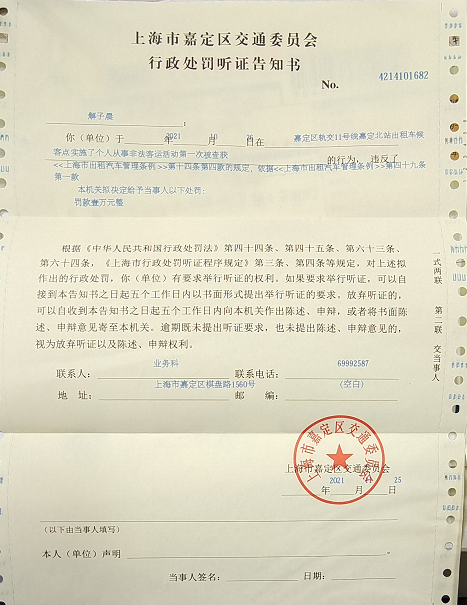 上海市嘉定区交通委员会
行政处罚听证告知书
No. 4214101682
解子晨 :
你(单位)于 2021 年 10 月 26 日在 嘉定区轨交11号线嘉定北站出租车候
客点实施了个人从事非法客运活动第一次被查获 的行为, 违反了
<<上海市出租汽车管理条例>>第十四条第四款的规定, 依据<<上海市出租汽车管理条例>>第四十九条
第一款
本机关拟决定给予当事人以下处罚:
罚款壹万元整
根据《中华人民共和国行政处罚法》第四十四条、第四十五条、第六十三条、
第六十四条,《上海市行政处罚听证程序规定》第三条、第四条等规定, 对上述拟
作出的行政处罚, 你(单位)有要求举行听证的权利。如果要求举行听证, 可以自
接到本告知书之日起五个工作日内以书面形式提出举行听证的要求。放弃听证的,
可以自收到本告知书之日起五个工作日内向本机关作出陈述、申辩, 或者将书面陈
述、申辩意见寄至本机关。逾期既未提出听证要求, 也未提出陈述、申辩意见的,
视为放弃听证以及陈述、申辩权利。
一式两联 第二联 交当事人
联系人: 业务科 联系电话: 69992587
地 址: 上海市嘉定区棋盘路1560号 邮 编: (空白)
上海市嘉定区交通委员会
上海市嘉定区交通委员会
2021 年 月 25 日
(以下由当事人填写)
本人(单位)声明
当事人签名: 日期: